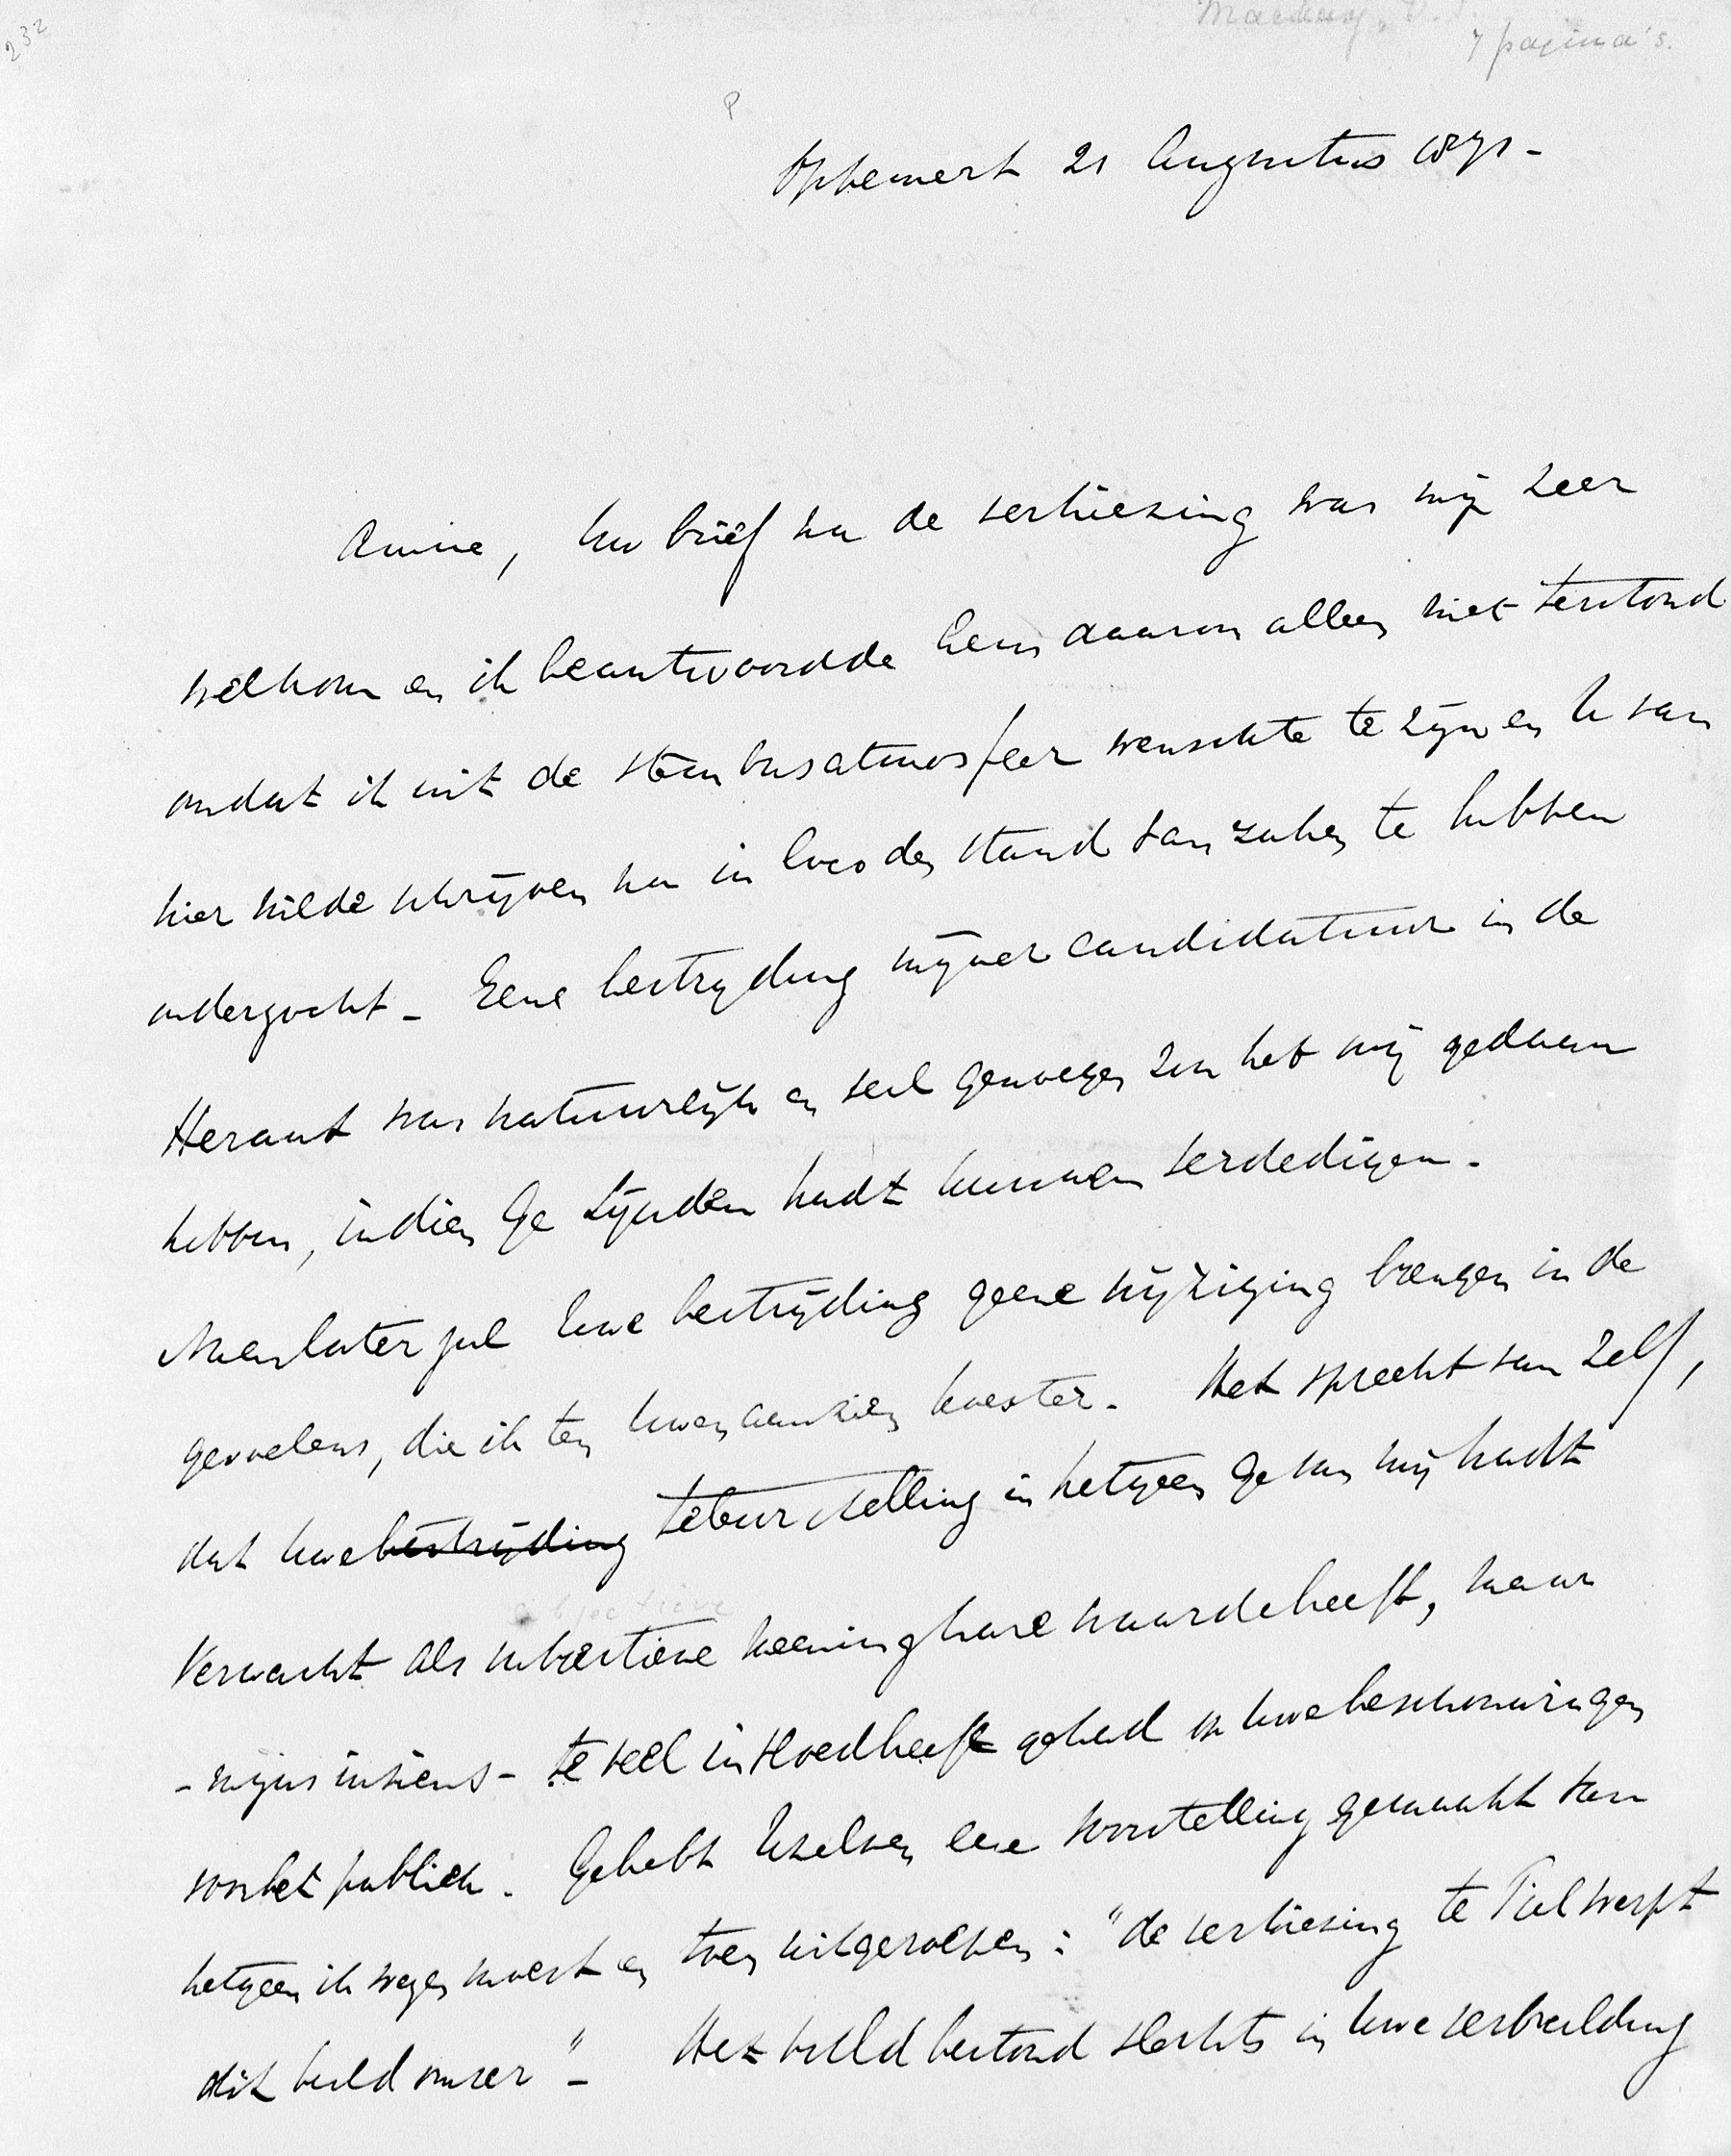 232
Mackay,
7 pagina's.
Ophemert 21 Augustus 1871 -
Amice, Uw brief na de verkiezing was mij zeer
welkom en ik beantwoordde hem daarom alleen niet terstond
omdat ik uit de stembusatmosfeer wenschte te zijn en U van
hier wilde schrijven na in loco den stand van zaken te hebben
onderzocht - Eene bestrijding mijner candidatuur in de
Heraut was natuurlijk en veel genoegen zou het mij gedaan
hebben, indien Ge Lijnden hadt kunnen verdedigen.
Maar later zal Uwe bestrijding geene wijziging brengen in de
gevoelens, die ik ten Uwen aanzien koester. Het spreekt van zelf,
dat Uwe bestrijding teleurstelling in hetgeen Ge van mij hadt
verwacht als subjectieve meening hare waarde heeft, maar
subjectieve
- mijns inziens - te veel invloed heeft gehad op Uwe beschouwingen
voor het publiek. Ge hebt Uzelven eene voorstelling gemaakt van
hetgeen ik wezen moest en toen uitgeroepen: "de verkiezing te Tiel werpt
dit beeld omver" - Het beeld bestond slechts in Uwe verbeelding